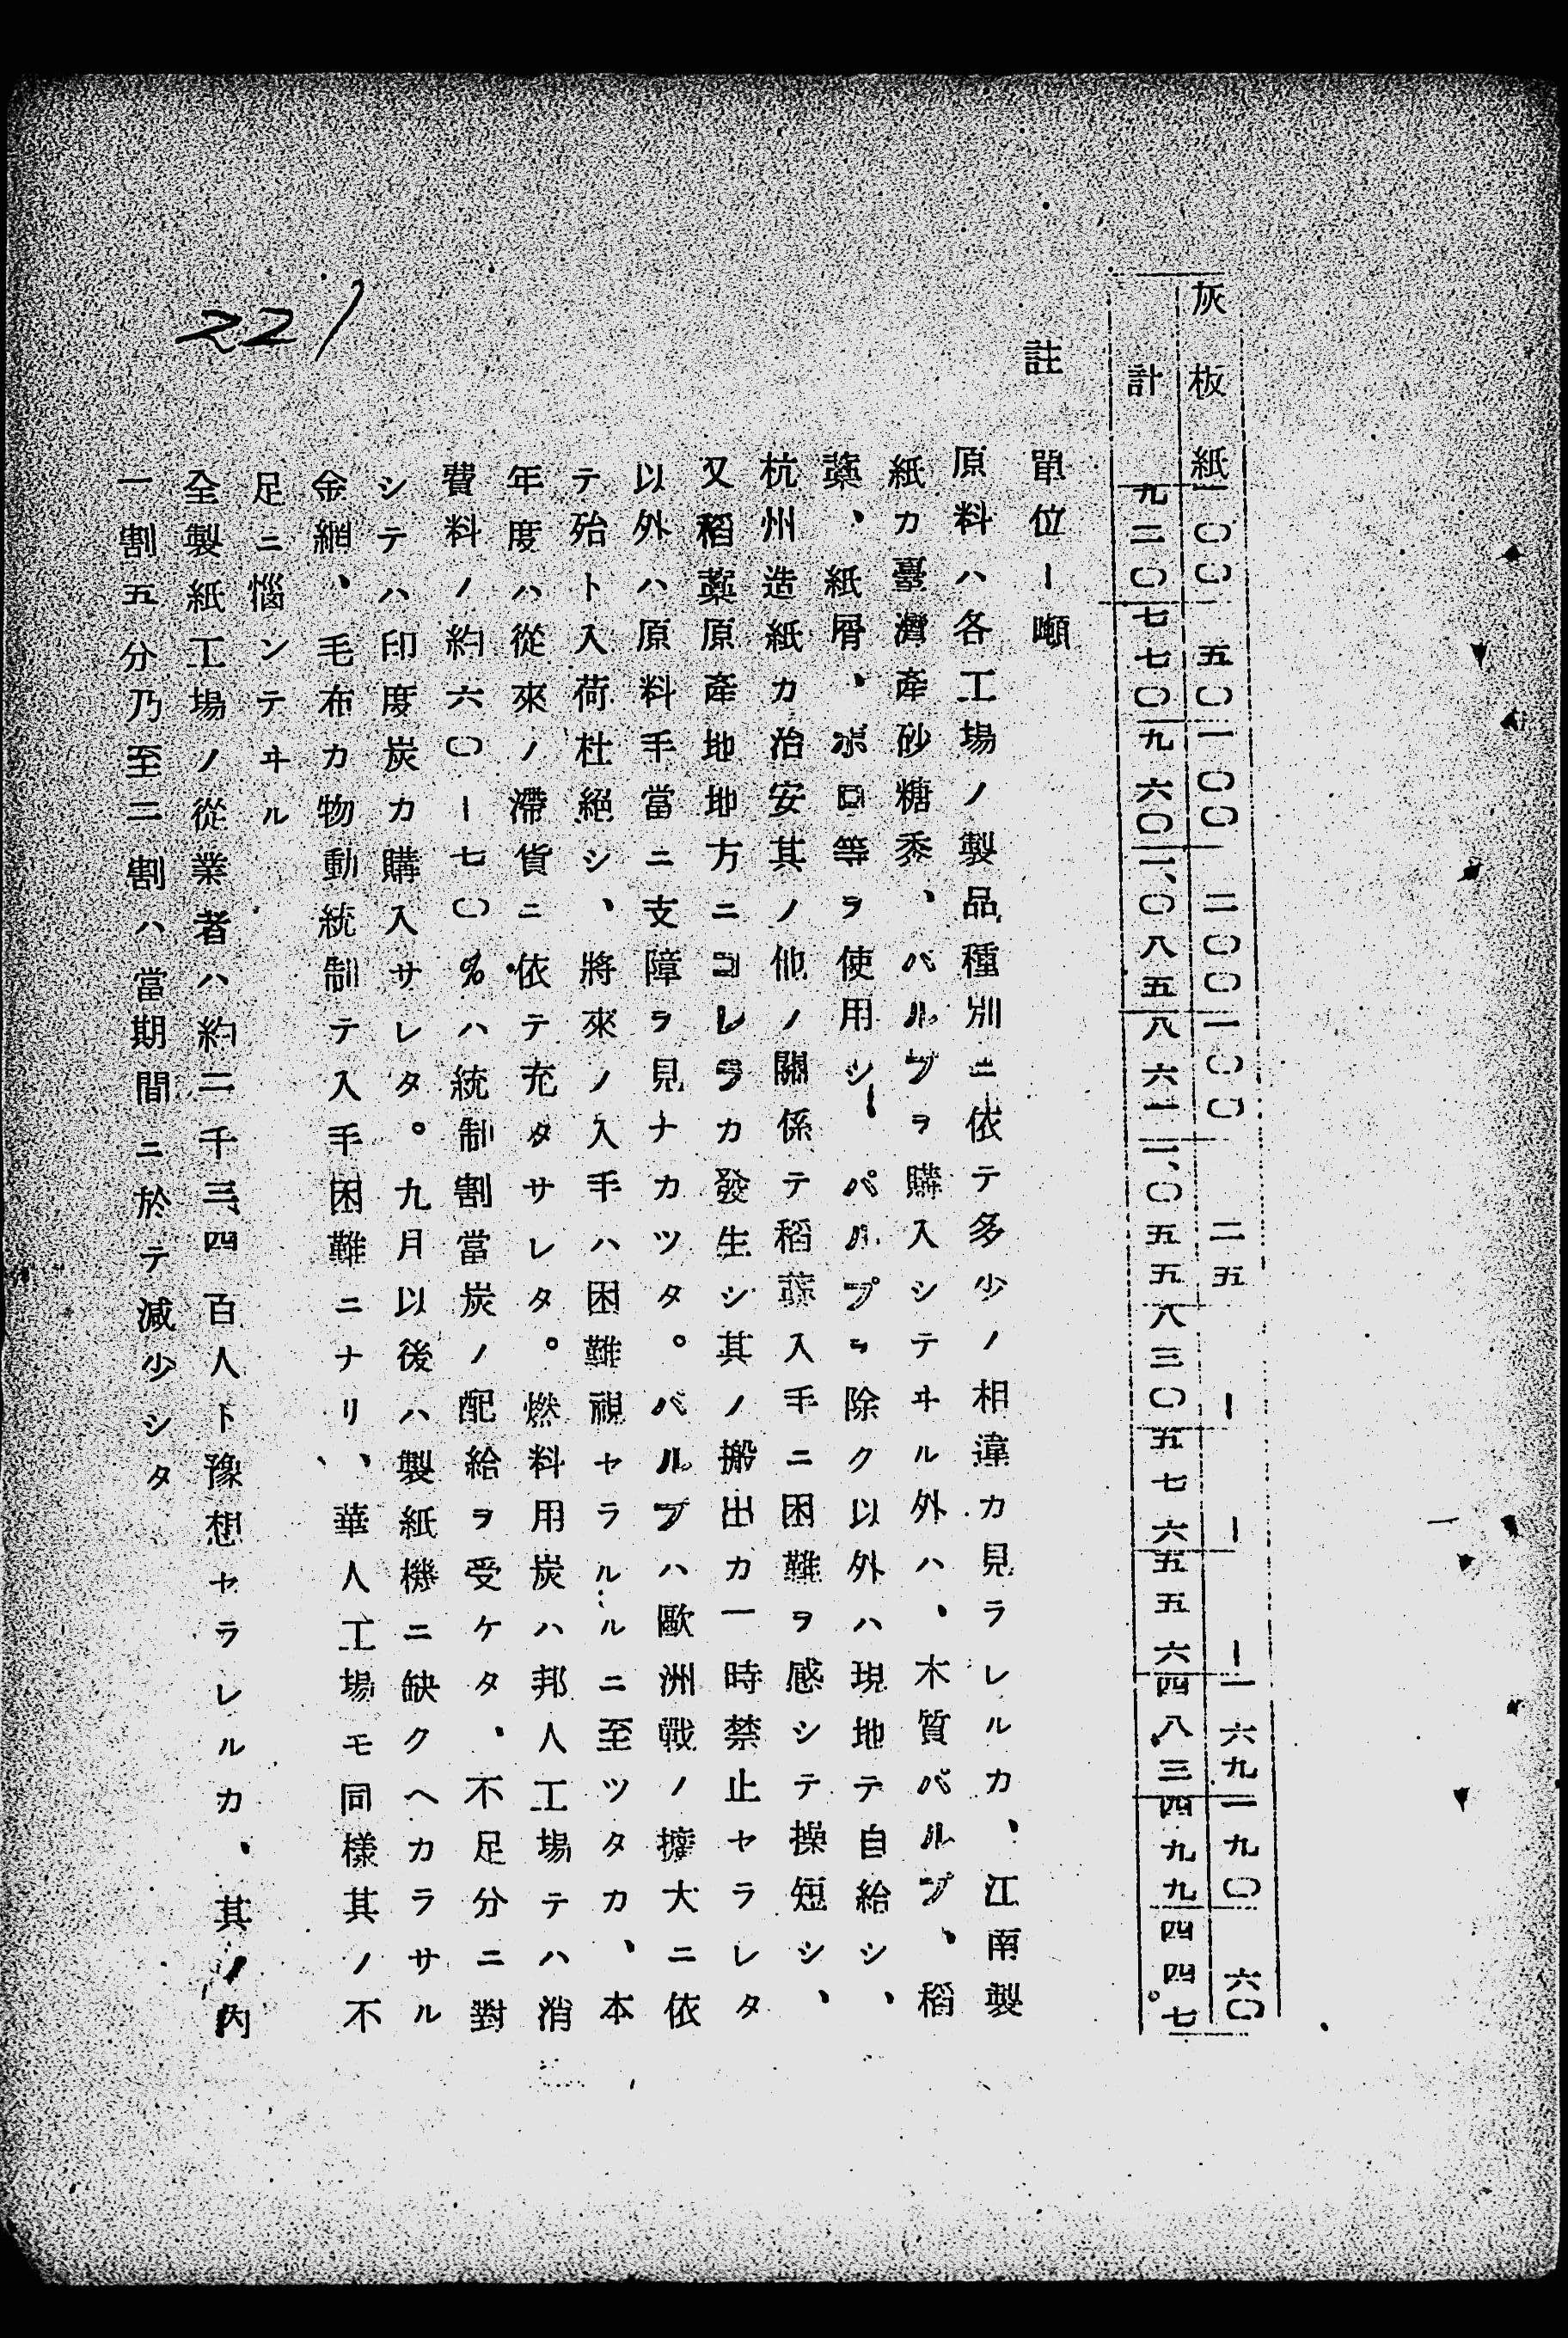 灰板紙 一〇〇 五〇 一〇〇 二〇〇 一〇〇 二五 ー ー ー 一六九 一九〇 六〇
計 九二〇 七七〇 九六〇 一、〇八五 八六一 一、〇五五 八三〇 五七六 五五六 四八三 四九九 四四七
註 單位ー噸
原料ハ各工場ノ製品種別ニ依テ多少ノ相違カ見ラレルカ、江南製
紙カ臺灣產砂糖黍、バルブヲ購入シテヰル外ハ、木質バルブ、稻
藁、紙屑、ボロ等ヲ使用シ パルプヲ除ク以外ハ現地テ自給シ、
杭州造紙カ治安其ノ他ノ關係テ稻藁入手ニ困難ヲ感シテ操短シ、
又稻藁原產地地方ニコレラカ發生シ其ノ搬出カ一時禁止セラレタ
以外ハ原料手當ニ支障ヲ見ナカツタ。バルブハ歐洲戰ノ擴大ニ依
テ殆ト入荷杜絕シ、將來ノ入手ハ困難視セラルルニ至ツタカ、本
年度ハ從來ノ滯貨ニ依テ充タサレタ。燃料用炭ハ邦人工場テハ消
費料ノ約六〇ー七〇%ハ統制割當炭ノ配給ヲ受ケタ、不足分ニ對
シテハ印度炭カ購入サレタ。九月以後ハ製紙機ニ缺クヘカラサル
金網、毛布カ物動統制テ入手困難ニナリ、華人工場モ同樣其ノ不
足ニ惱ンテヰル
全製紙工場ノ從業者ハ約二千三、四百人ト豫想セラレルカ、其ノ內
一割五分乃至二割ハ當期間ニ於テ減少シタ
221